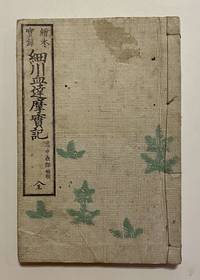 繪本實録
細川血達摩實記
全